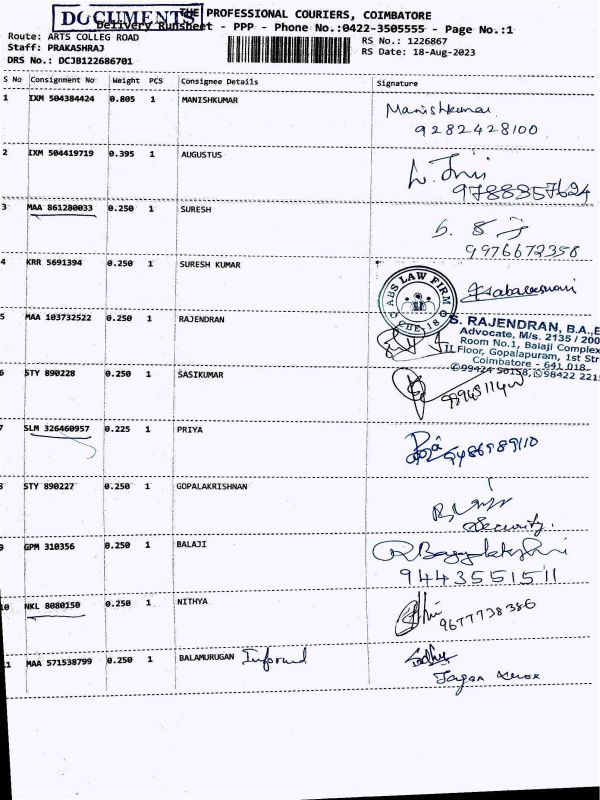 DOCUMENTS
THE PROFESSIONAL COURIERS, COIMBATORE
Delivery Runsheet - PPP - Phone No.:0422-3505555 - Page No.:1
Route: ARTS COLLEG ROAD
RS No.: 1226867
Staff: PRAKASHRAJ
RS Date: 18-Aug-2023
DRS No.: DCJB122686701
S No Consignment No Weight PCS Consignee Details Signature
1 IXM 504384424 0.805 1 MANISHKUMAR Manishkumar
9282428100
2 IXM 504419719 0.395 1 AUGUSTUS
9788357624
3 MAA 861280033 0.250 1 SURESH
9976672358
4 KRR 5691394 0.250 1 SURESH KUMAR
ABS LAW FIRM
CBE 18
5 MAA 103732522 0.250 1 RAJENDRAN
S. RAJENDRAN, B.A.,B
Advocate, M/s. 2135 / 200
Room No.1, Balaji Complex
II Floor, Gopalapuram, 1st Str
Coimbatore - 641 018.
✆99424 50158, ✆98422 221
6 STY 890228 0.250 1 SASIKUMAR
7 SLM 326460957 0.225 1 PRIYA
9486989110
8 STY 890227 0.250 1 GOPALAKRISHNAN
Security.
9 GPM 310356 0.250 1 BALAJI
9443551511
10 NKL 8080150 0.250 1 NITHYA
9677738386
11 MAA 571538799 0.250 1 BALAMURUGAN Informd
Jagan Xerox